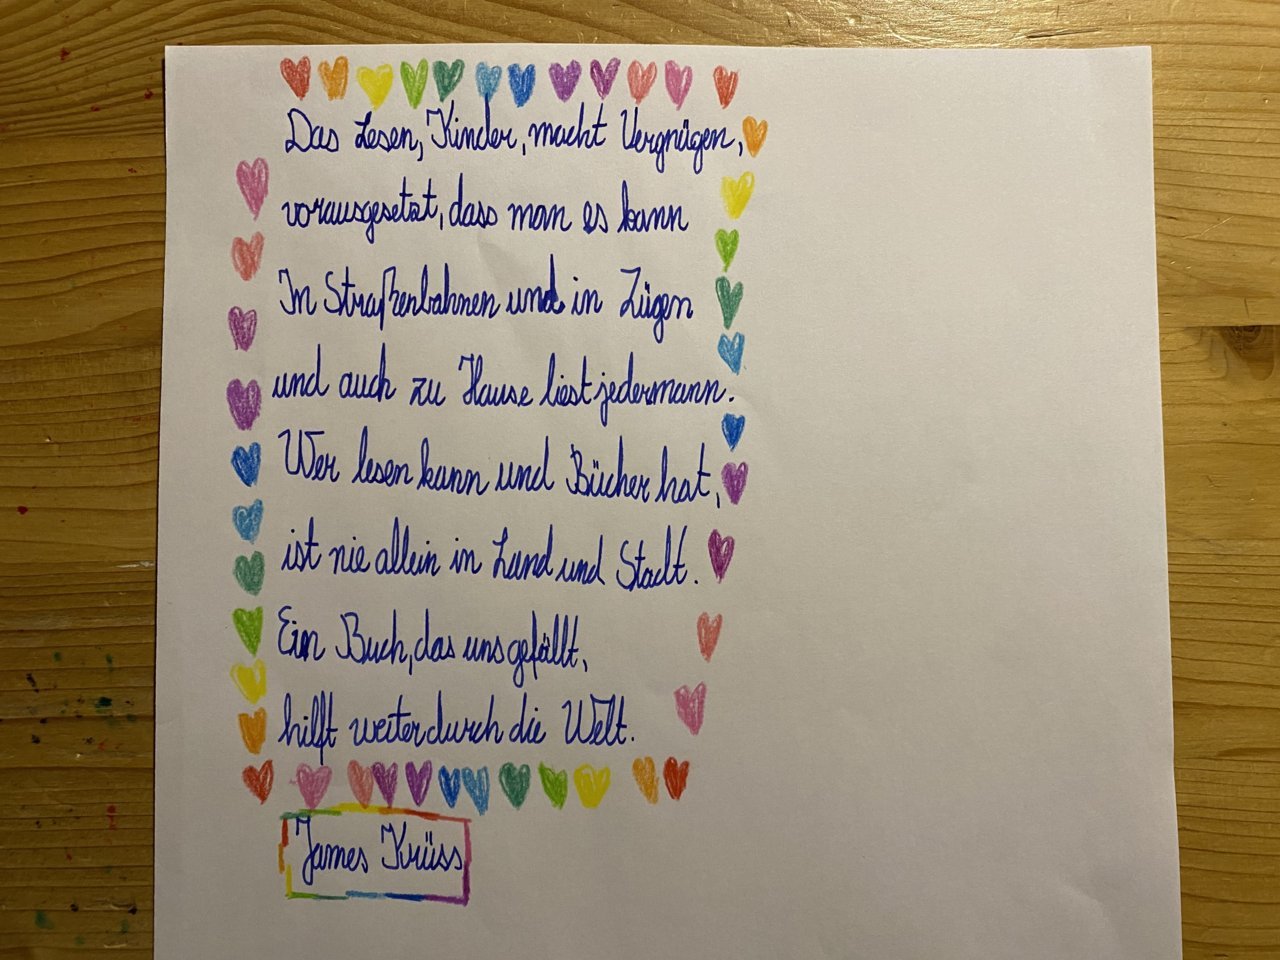 Das Lesen, Kinder, macht Vergnügen,
vorausgesetzt, dass man es kann
In Straßenbahnen und in Zügen
und auch zu Hause liest jedermann.
Wer lesen kann und Bücher hat,
ist nie allein in Land und Stadt.
Ein Buch, das uns gefällt,
hilft weiter durch die Welt.
James Krüss